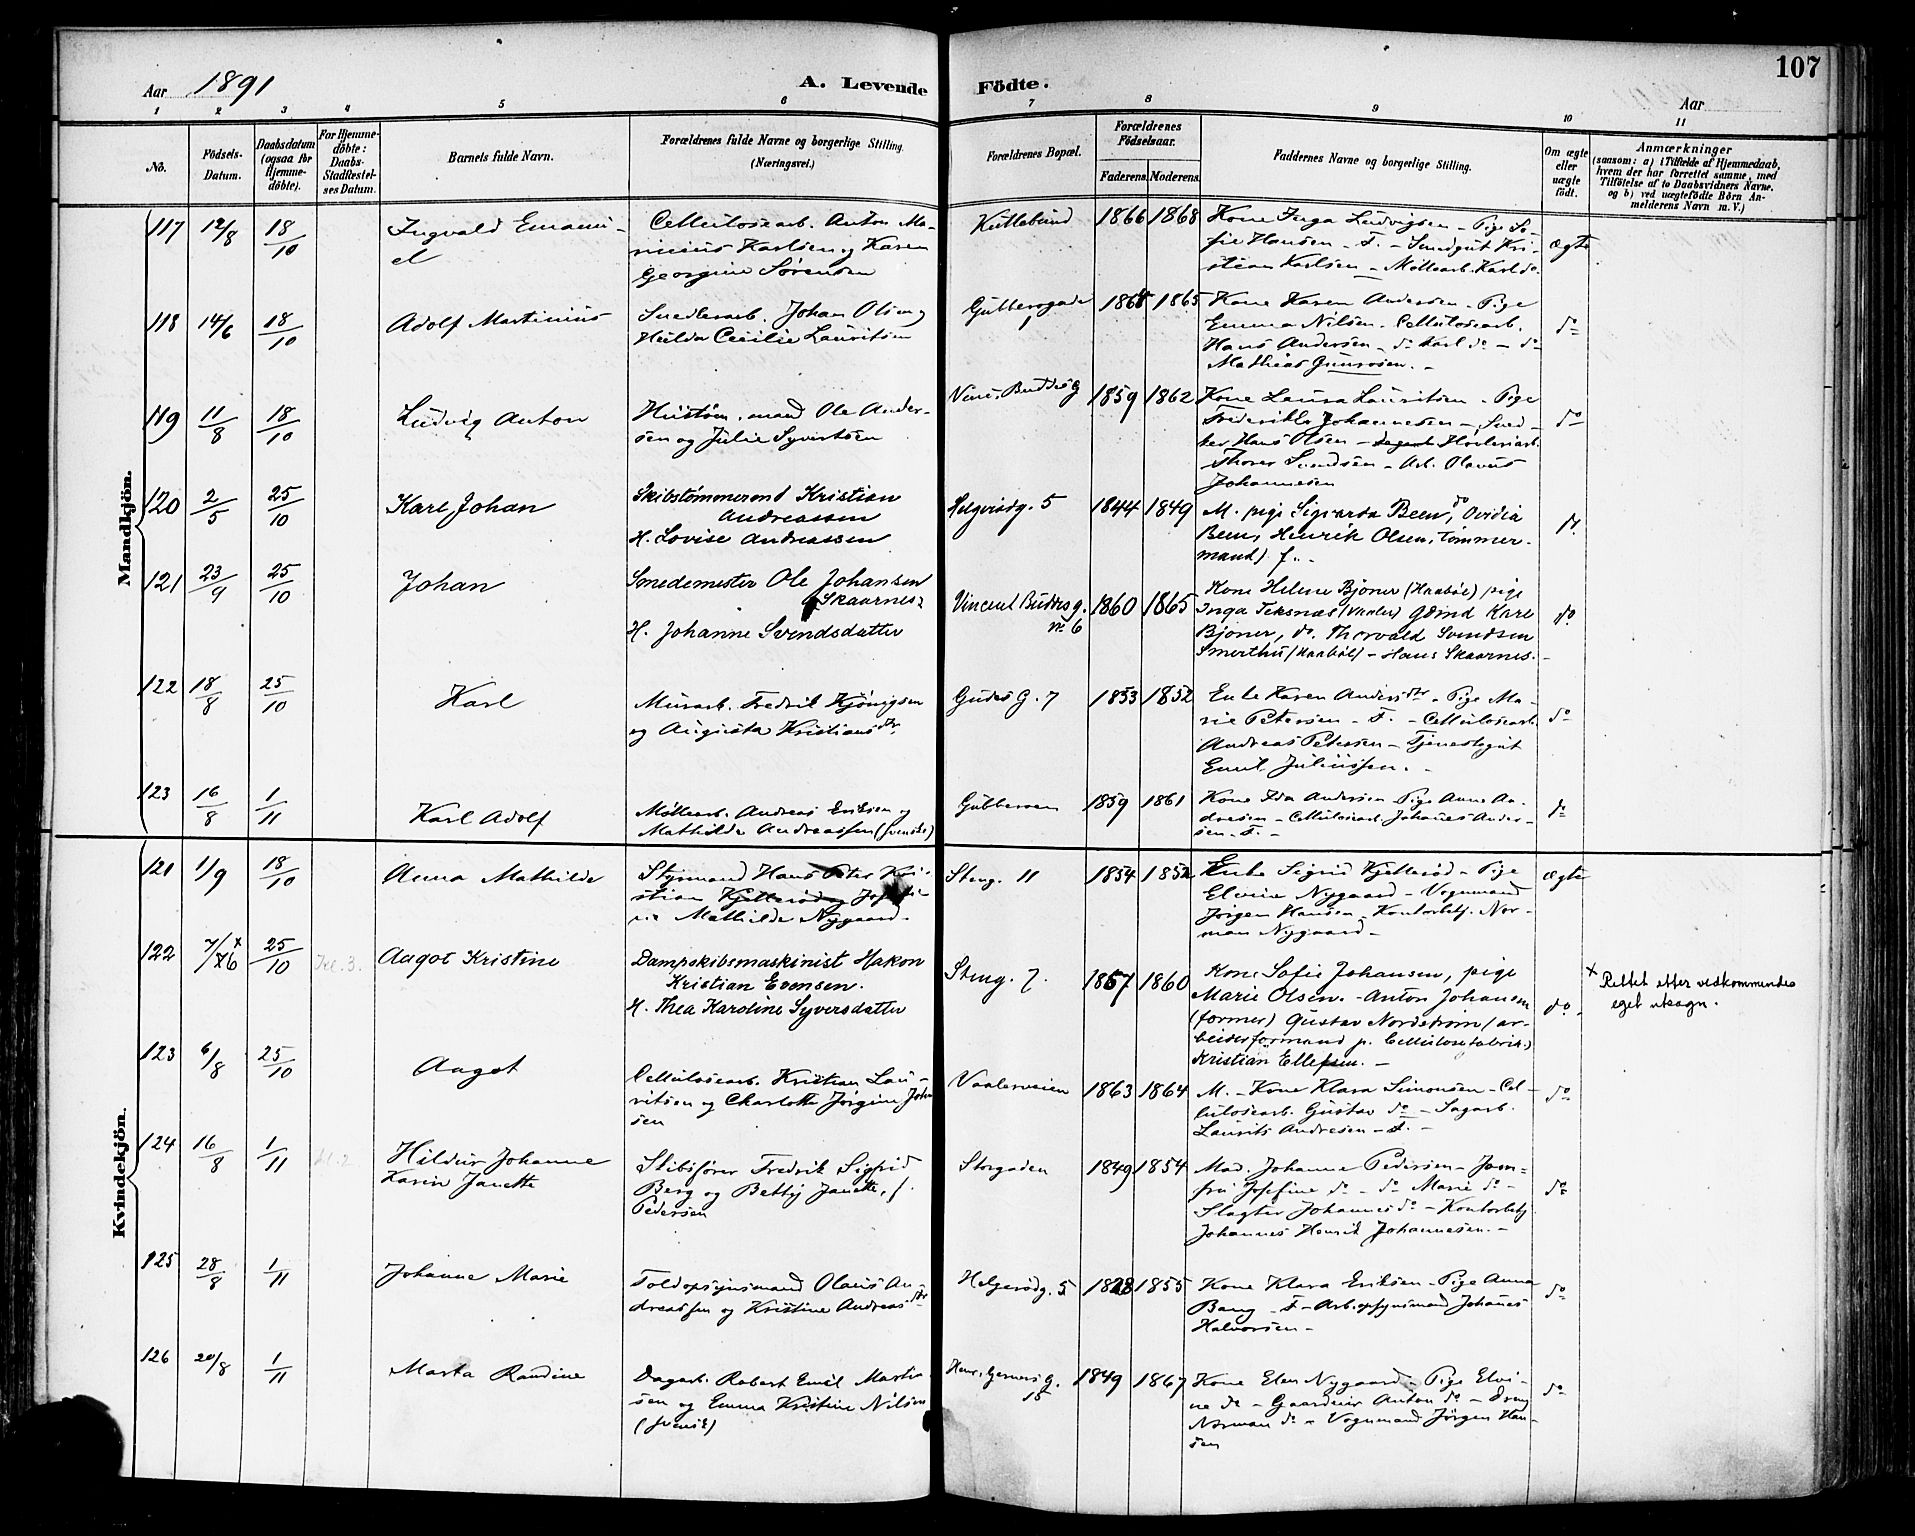 107
Aar 1891
A. Levende Födte.
Aar
1 2 3 4 5 6 7 8 9 10 11
No.
Födsels-Datum.
Daabsdatum (ogsaa for Hjemmedöbte).
For Hjemmedöbte: Daabs-Stadfæstelses Datum.
Barnets fulde Navn.
Forældrenes fulde Navne og borgerlige Stilling. (Næringsvei.)
Forældrenes Bopæl.
Forældrenes Födselsaar.
Faderens. Moderens.
Faddernes Navne og borgerlige Stilling.
Om ægte eller uægte födt.
Anmærkninger
(saasom: a) i Tilfælde af Hjemmedaab, hvem der har forrettet samme, med Tilföielse af to Daabsvidners Navne, og b) ved uægtefödte Börn Anmelderens Navn m. V.)
Mandkjön.
117 12/8 18/10 Ingvald Emanu-
el
Cellulosearb. Anton Ma-
rinius Karlsen og Karen
Georgine Sørensen
1866 1868
Kone Inga Ludvigsen - Pige So-
fie Hansen - F. - Smedgut Kri-
stian Karlsen - Møllearb. Karl do.
ægte
118 14/6 18/10 Adolf Martinius
Snedkerarb. Johan Olsen og
Hulda Cecilie Lauritsen
Gubberogade
1
1864 1865
Kone Karen Andersen - Pige
Emma Nilsen. Cellulosearb.
Hans Andersen - do Karl do - do
Mathias Gunrosen. -
do
119 11/8 18/10 Ludvig Anton
Hustøm.mand Ole Ander-
sen og Julie Syvertsen
Vinc. Buddes g
1859 1862
Kone Laura Lauritsen - Pige
Frederikke Johannesen - Sned-
ker Hans Olsen - Høvleriarb.
Thorer Svendsen - Arb. Olavus
Johannesen
do
120 2/5 25/10 Karl Johan
Skibstømmermd Kristian
Andreassen
H. Lovise Andreassen
Helgerødg. 5
1844 1849
M. pige Sigvarda Been, do Ovidia
Been, Henrik Olsen, tømmer-
mand) f. -
121 23/9 25/10 Johan
Smedemester Ole Johansen
Skaarnes
H. Johanne Svendsdatter
Vincent Buddes g.
no 6
1860 1865
Kone Helene Bjøner (Haabøl) pige
Inga Teksnæs (Vaaler) Gdmd Karl
Bjøner, do. Thorvald Svendsen
Smerthu (Haabøl) - Hans Skaarnes. -
do
122 18/8 25/10 Karl
Murarb. Fredrik Kjönigsen
og Augusta Kristiansdtr.
Gudes G. 7
1853 1852
Enke Karen Andersdtr - Pige Ma-
rie Petersen - F. - Cellulosearb.
Andreas Petersen - Tjenestegut
Emil Juliussen. -
do
123 16/8 1/11 Karl Adolf
Møllearb. Andreas Eriksen og
Mathilde Andreassen (svenske)
Gubberoen
1859 1861
Kone Ida Andersen - Pige Anna An-
dresen - Cellulosearb. Johannes Ander-
sen - F. -
do
Kvindekjön.
121 1/9 18/10 Anna Mathilde
Styrmand Hans Peter Kri-
stian Kjellerød og Josefi-
ne Mathilde Nygaard -
Steng. 11
1854 1852
Enke Sigrid Kjellerød - Pige
Elvine Nygaard - Vognmand
Jørgen Hansen - Kontorbetj. Nor-
man Nygaard -
ægte
122 25/10 Aagot Kristine
Dampskibsmaskinist Hakon
Kristian Evensen.
H. Thea Karoline Syversdatter
Steng. 7.
1857 1860
Kone Sofie Johansen, pige
Marie Olsen. - Anton Johansen
(former) Gustav Nordstrøm (ar-
beiderformand p. Cellulosefabrik)
Kristian Ellefsen. -
do -
x Rettet efter vedkommendes
eget utsagn.
123 6/8 25/10 Aagot
Cellulosearb. Kristian Lau-
ritsen og Charlotte Jørgine Johan
sen
Vaalerveien
1863 1864
M. - Kone Klara Simonsen - Cel-
lulosearb. Gustav do - Sagarb.
Laurits Andresen - F. -
do
124 16/8 1/11 Hildur Johanne
Karin Janette
Skibsfører Fredrik Sigfrid
Berg og Betty Janette, f.
Pedersen
Storgaden
1849 1854
Mad. Johanne Pedersen - Jom-
fru Josefine do - do Marie do -
Slagter Johannes do - Kontorbetj.
Johannes Henrik Johannesen. -
do
125 28/8 1/11 Johanne Marie
Toldopsynsmand Olaus An-
dreassen og Kristine Andreasdtr
Helgerødg. 5
1855
Kone Klara Eriksen - Pige Anna
Bang - F - Arb.opsynsmand Johannes
Halvorsen -
do
126 20/8 1/11 Marta Randine
Dagarb. Robert Emil Martin-
sen og Emma Kristine Nilsen
(svensk)
Henr. Gerners g.
15
1849 1867
Kone Elen Nygaard - Pige Elvi-
ne do - Gaardeier Anton do - Dreng
Norman do - Vognmand Jørgen Han-
sen
do